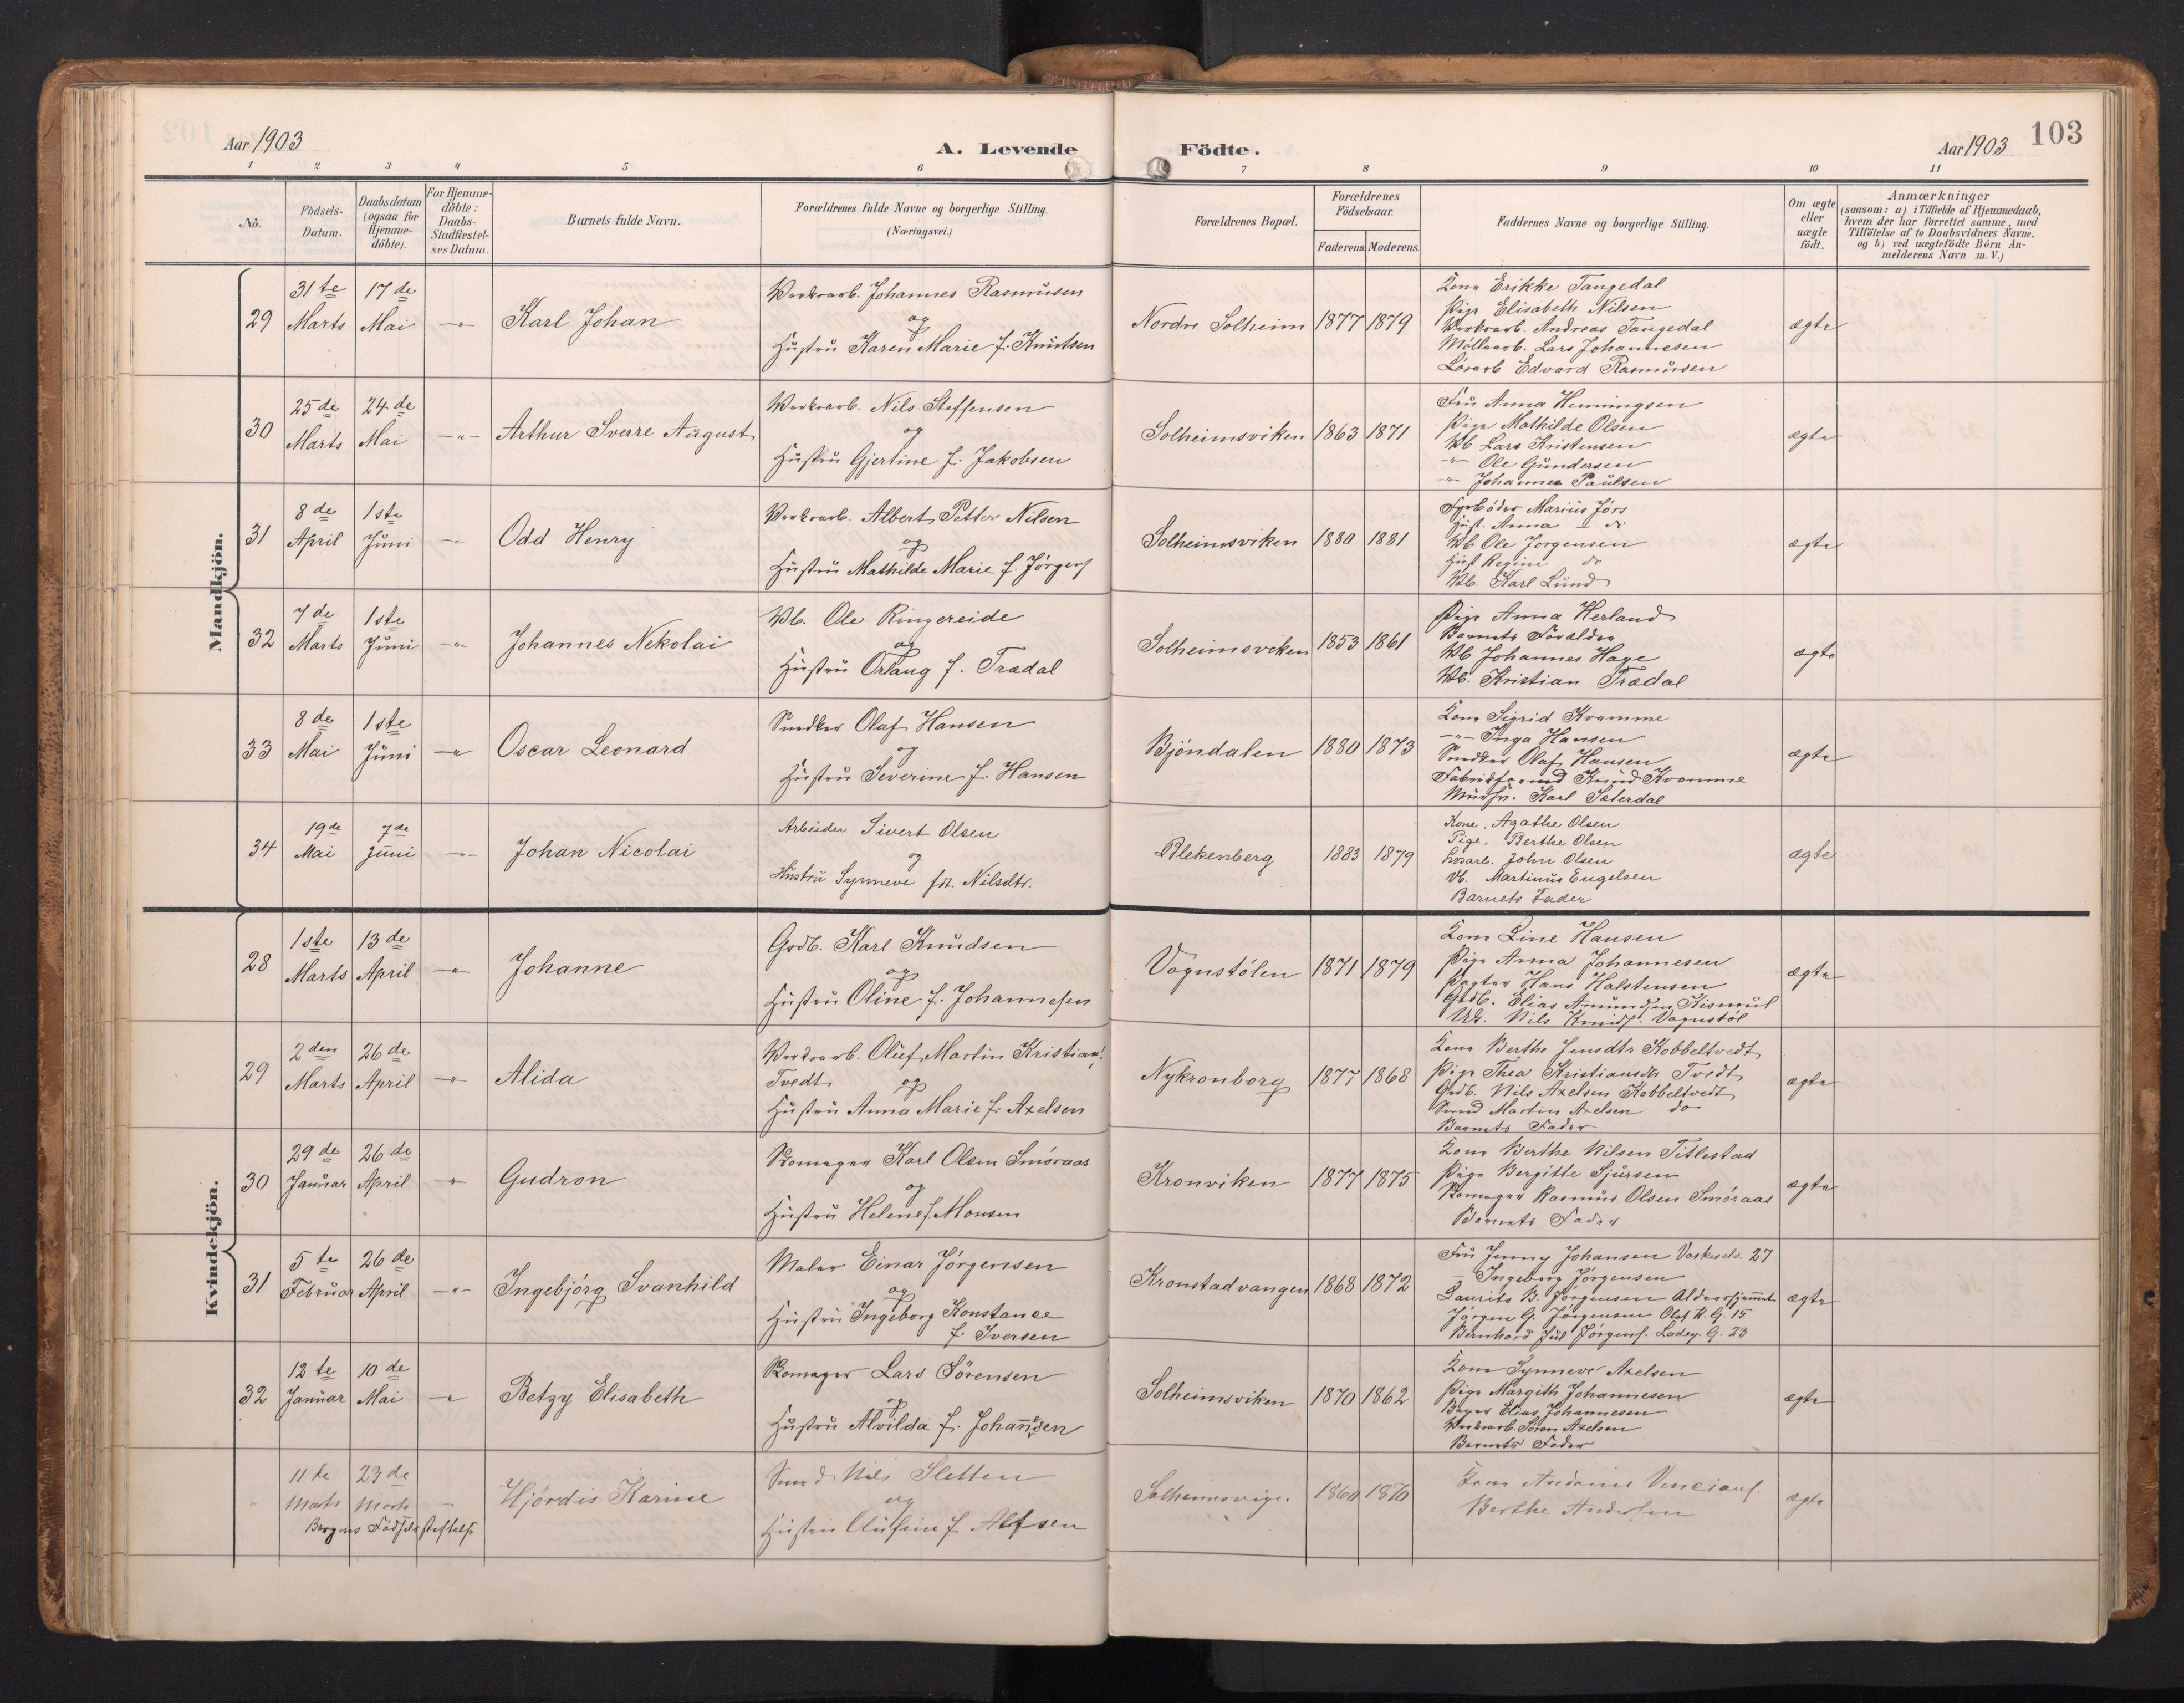 Aar 1903
A. Levende
Fødte.
Aar 1903
103
1 2 3 4 5 6 7 8 9 10 11
No.
Födsels-Datum.
Daabsdatum (ogsaa for Hjemme-döbte).
For Hjemme-döbte: Daabs-Stadfæstel-ses Datum.
Barnets fulde Navn.
Forældrenes fulde Navne og borgerlige Stilling.
(Næringsvei.)
Forældrenes Bopæl.
Forældrenes Födselsaar.
Faderens. Moderens.
Faddernes Navne og borgerlige Stilling.
Om ægte eller uægte födt.
Anmærkninger
(saasom: a) i Tilfælde af Hjemmedaab,
hvem der har forrettet samme, med
Tilföielse af to Daabsvidners Navne.
og b) ved uægtefödte Börn An-
melderens Navn m. V.)
Mandkjön.
29 31te Marts 17de Mai -"- Karl Johan
Værksarb. Johannes Rasmusen
og
Hustru Karen Marie f. Knutsen
Nordre Solheim 1877 1879
Kone Erikke Tangedal
Pige Elisabeth Nilsen
Værksarb. Andreas Tangedal
Möllearb. Lars Johannesen
Lösarb Edvard Rasmusen
ægte
30 25de Marts 24de Mai -"- Arthur Sverre August
Værksarb. Nils Steffensen
og
Hustru Gjertine f. Jakobsen
Solheimsviken 1863 1871
Fru Anna Henningsen
Pige Mathilde Olsen
Vb Lars Kristensen
-"- Ole Gundersen
-"- Johannes Paulsen
ægte
31 8de April 1ste Juni -"- Odd Henry
Værksarb. Albert Petter Nilsen
og
Hustru Mathilde Marie f. Jörgens
Solheimsviken 1880 1881
Fyrböder Marius Jörs
Hust. Anna do
Vb Ole Jorgensen
Hust Regine do
Vb. Karl Lund
ægte
32 7de Marts 1ste Juni -"- Johannes Nekolai
Vb. Ole Ringereide
og
Hustru Orlaug f. Trædal
Solheimsviken 1853 1861
Pige Anna Herland
Barnets Forældre
Vb Johannes Hage
Vb. Kristian Trædal
ægte
33 8de Mai 1ste Juni -"- Oscar Leonard
Snedker Olaf Hansen
og
Hustru Severine f. Hansen
Bjöndalen 1880 1873
Kone Sigrid Kvamme
-"- Inga Hansen
Snedker Olaf Hansen
Knud Kvamme
Karl Sæterdal
ægte
34 19de Mai 7de Juni -"- Johan Nicolai
Arbeider Sivert Olsen
og
Hustru Synneve fd. Nilsdtr.
Blekenberg 1883 1879
Kone, Agathe Olsen
Pige, Berthe Olsen
Lösarb. John Olsen
Vb. Martinus Engelsen
Barnets Fader
ægte
Kvindekjön.
28 1ste Marts 13de April -"- Johanne
Grdb. Karl Knudsen
og
Hustru Oline f. Johannesen
Vognstölen 1871 1879
Kone Line Hansen
Pige Anna Johannesen
Hans Halstensen
Grdb. Elias Amundsen Kismul
Nils Knuds. Vognstöl
ægte
29 2den Marts 26de April -"- Alida
Værksarb. Oluf Martin Kristian
Tvedt
og
Hustru Anna Marie f. Axelsen
Nykronborg 1877 1868
Kone Berthe Jensdtr Kobbeltvedt
Pige Thea Kristiansdtr Tvedt
Grdb. Nils Axelsen Kobbeltvedt
Smed Martin Axelsen do
Barnets Fader
ægte
30 29de Januar 26de April -"- Gudron
Skomager Karl Olsen Smöraas
og
Hustru Helene f. Monsen
Kronviken 1877 1875
Kone Berthe Nilsen Titlestad
Pige Bergitte Sjursen
Skomager Rasmus Olsen Smöraas
Barnets Fader
ægte
31 5te Februar 26de April -"- Ingebjörg Svanhild
Maler Einar Jörgensen
og
Hustru Ingeborg Konstance
f. Iversen
Kronstadvangen 1868 1872
Fru Jenny Johansen 27
- Ingeborg Jörgensen
Laurits B. Jörgensen Aldershjemmet
Jörgen G. Jörgensen Olaf K. G. 15
Bernhard Jul Jörgens. Ladeg. G. 23
ægte
32 12te Januar 10de Mai -"- Betzy Elisabeth
Skomager Lars Sörensen
og
Hustru Alvilda f. Johansen
Solheimsviken 1870 1862
Kone Synneve Axelsen
Pige Margith Johannesen
Bager Elias Johannesen
Værksarb. Sören Axelsen
Barnets Fader
ægte
" 11te Marts 23de Marts - Hjördis Karine
Bergens Födselsstiftelse
Smed Nils Sletten
og
Hustru f. Alfsen
Solheimsvigen. 1860 1870
Kone
Berthe Andersen
ægte